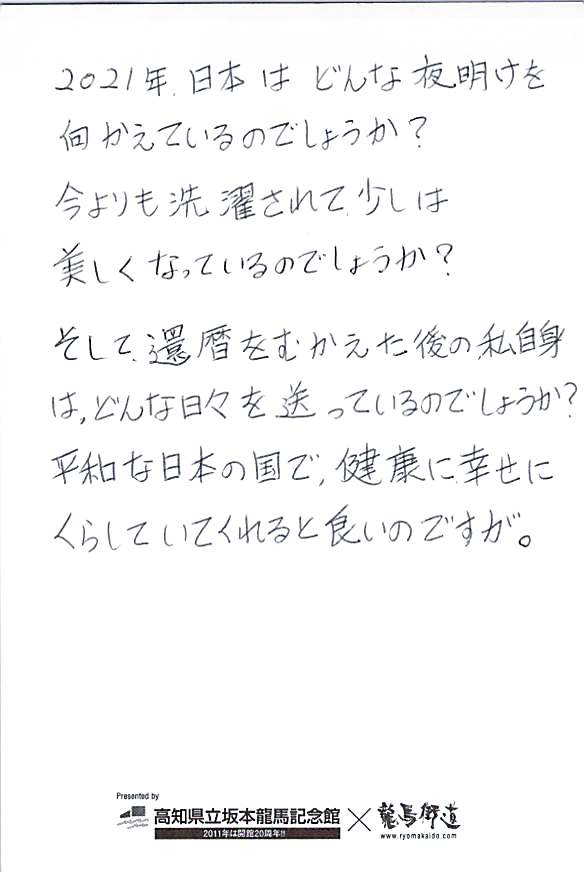 2021年、日本は どんな夜明けを
向かえているのでしょうか？
今よりも洗濯されて、少しは
美しくなっているのでしょうか？
そして、還暦をむかえた後の、私自身
は、どんな日々を送っているのでしょうか？
平和な日本の国で、健康に、幸せに
くらしていてくれると良いのですが。
Presented by
高知県立坂本龍馬記念館 × 龍馬街道
2011年は開館20周年!!
www.ryomakaido.com